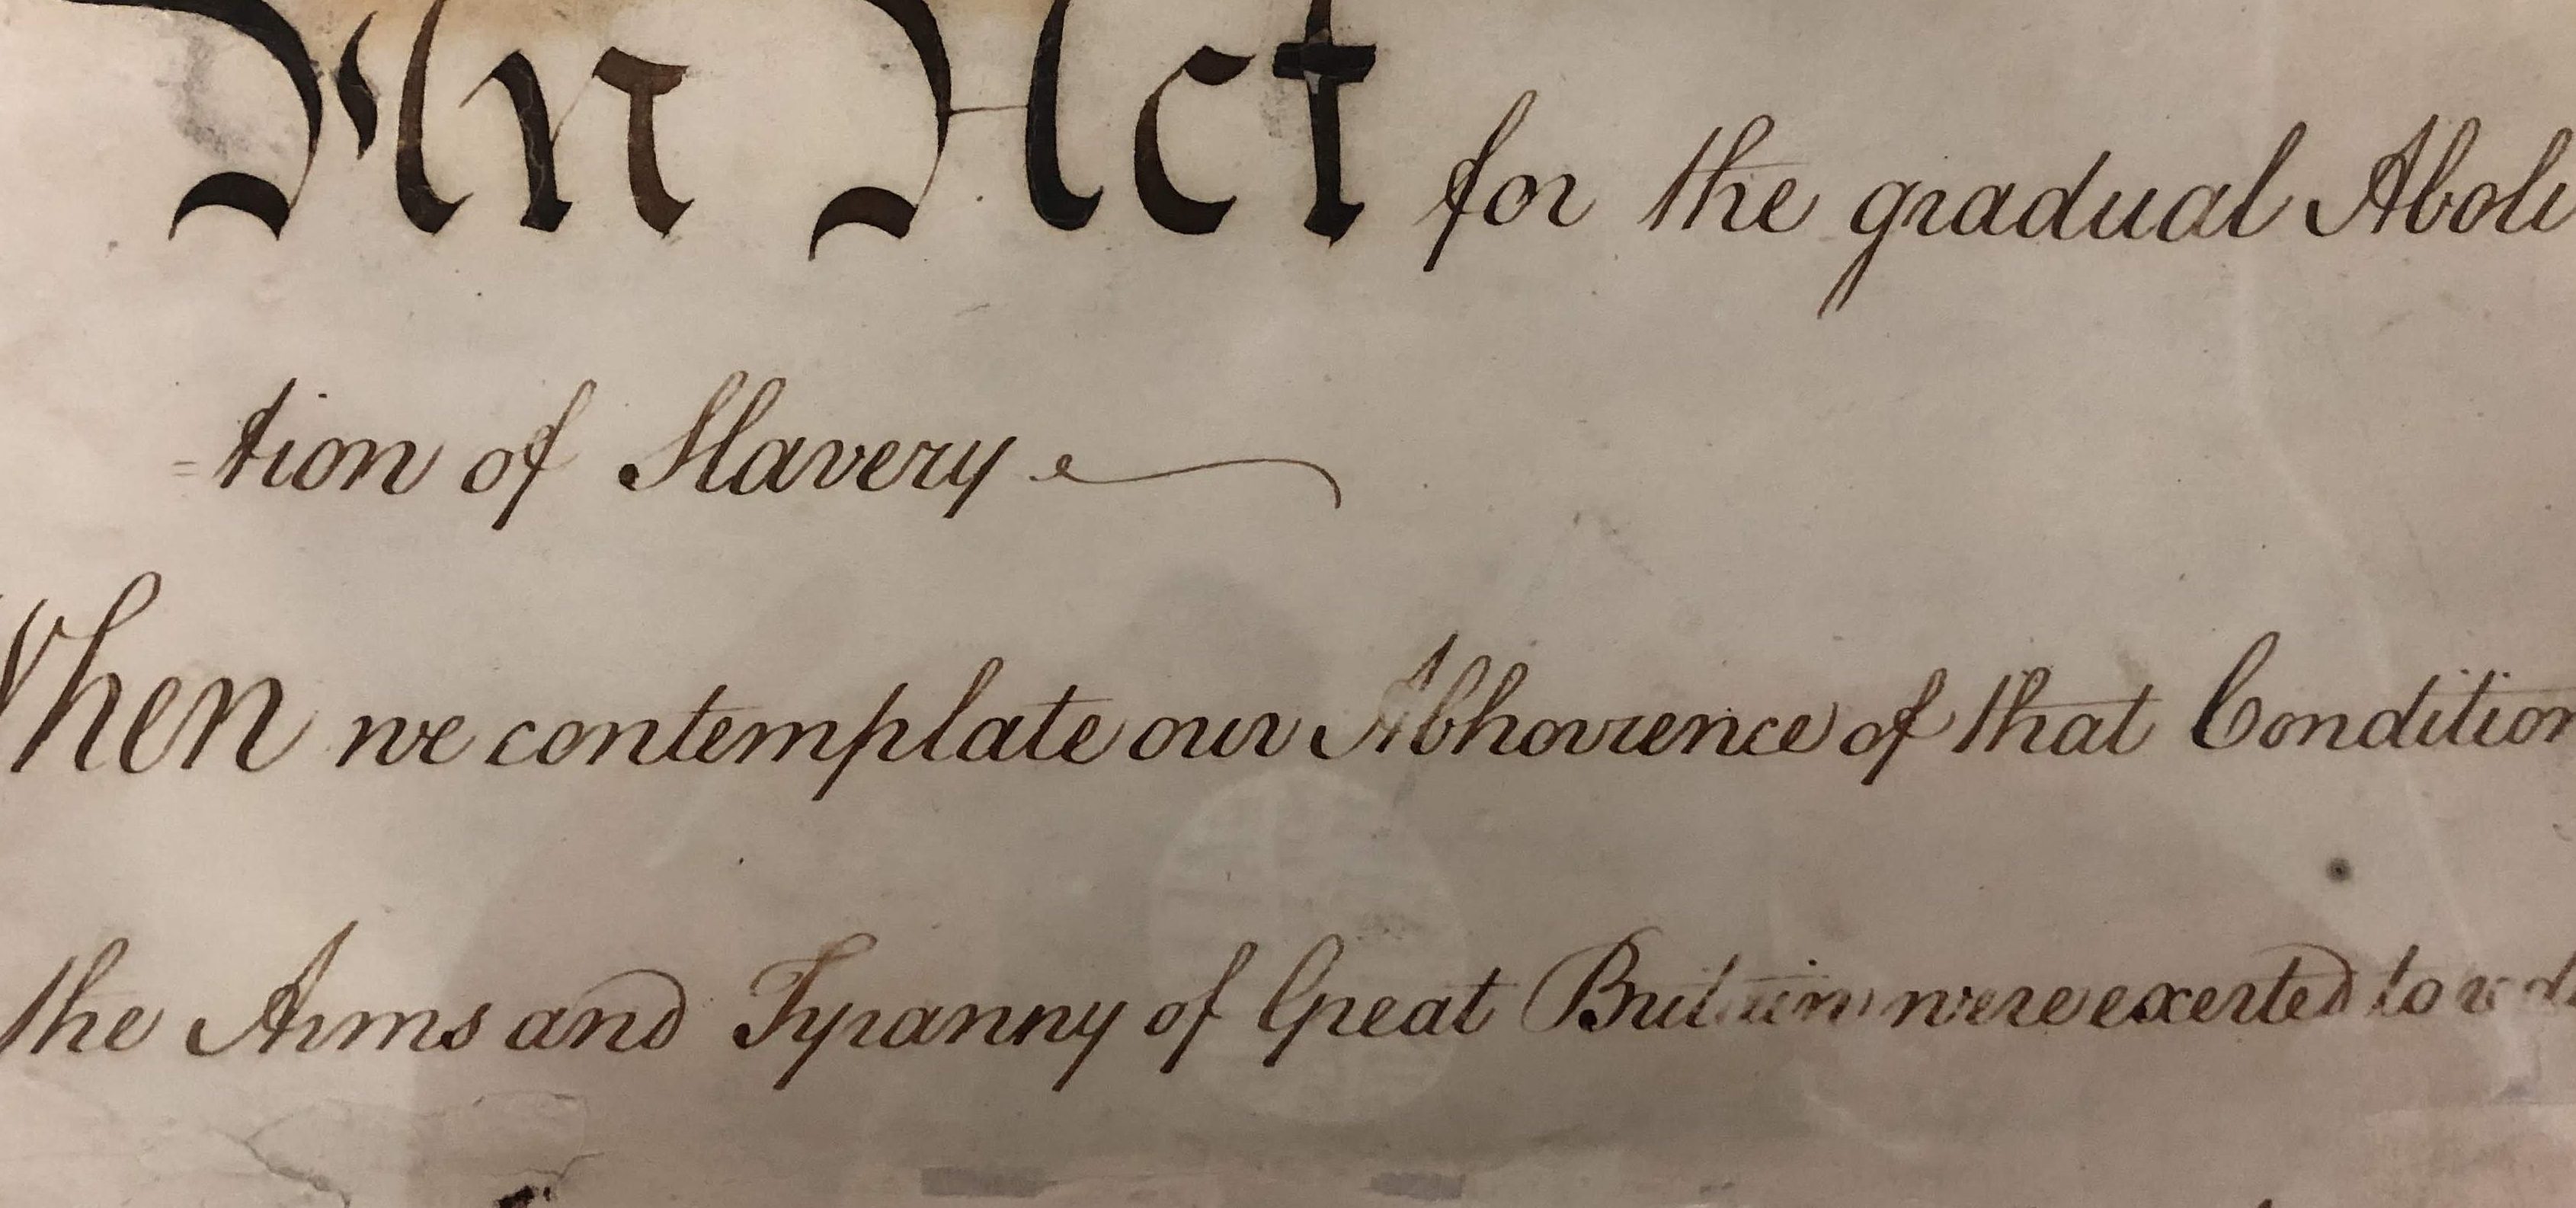 An Act for the gradual Aboli
=tion of Slavery
When we contemplate our Abhorrence of that Condition
the Arms and Tyranny of Great Britain were exerted to